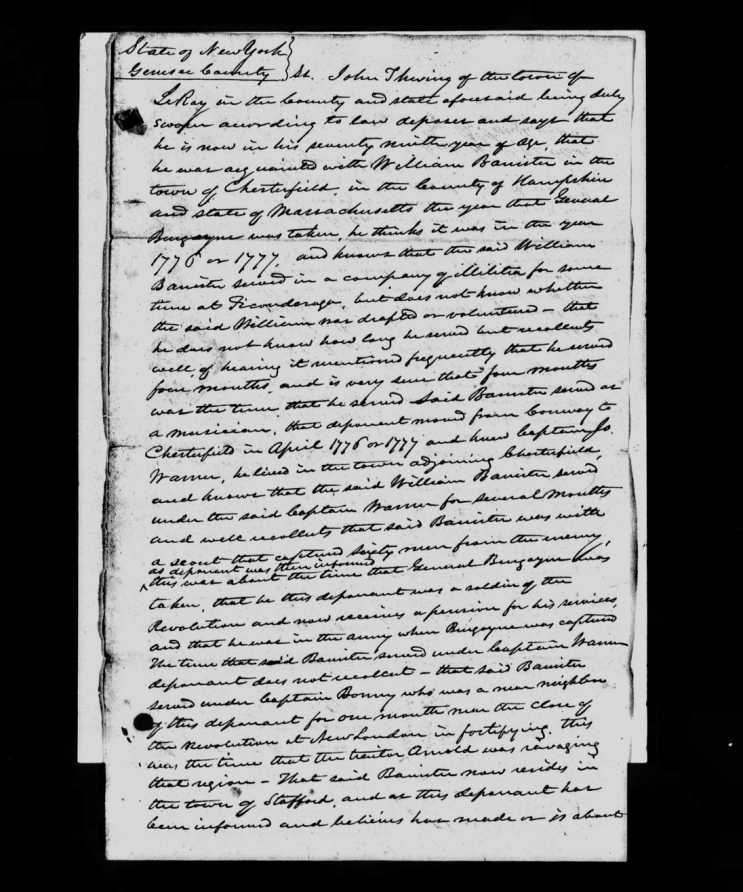 State of New York }
Genesee County } Ss. John Thwing of the town of
LeRoy in the County and state aforesaid being duly
sworn according to law deposes and says that
he is now in his seventy ninth year of age, that
he was acquainted with William Banister in the
town of Chesterfield in the County of Hampshire
and state of Massachusetts the year that General
Burgoyne was taken, he thinks it was in the year
1776 or 1777, and knows that the said William
Banister served in a company of Militia for some
time at Ticonderoga, but does not know whether
the said William was drafted or volunteered – that
he does not know how long he served but recollects
well of hearing it mentioned frequently that he served
four months, and is very sure that four months
was the time that he served said Banister served as
a musician, that deponent moved from Conway to
Chesterfield in April 1776 or 1777 and knew Captain Jo.
Warner, he lived in the town adjoining Chesterfield,
and knows that the said William Banister served
under the said Captain Warner for several months
and well recollects that said Banister was with
a scout that captured sixty men from the enemy,
as deponent was then informed
^ this was about the time that General Burgoyne was
taken, that he this deponant was a soldier of the
Revolution and now receives a pension for his services,
and that he was in the army when Burgoyne was captured
The time that said Banister served under Captain Warner
deponant does not recollect – that said Banister
served under Captain Bonny who was a near neighbor
of this deponant for one month near the close of
the Revolution at New London in fortifying. this
was the time that the traitor Arnold was ravaging
that region – That said Banister now resides in
the town of Stafford, and as this deponant has
been informed and believes has made or is about